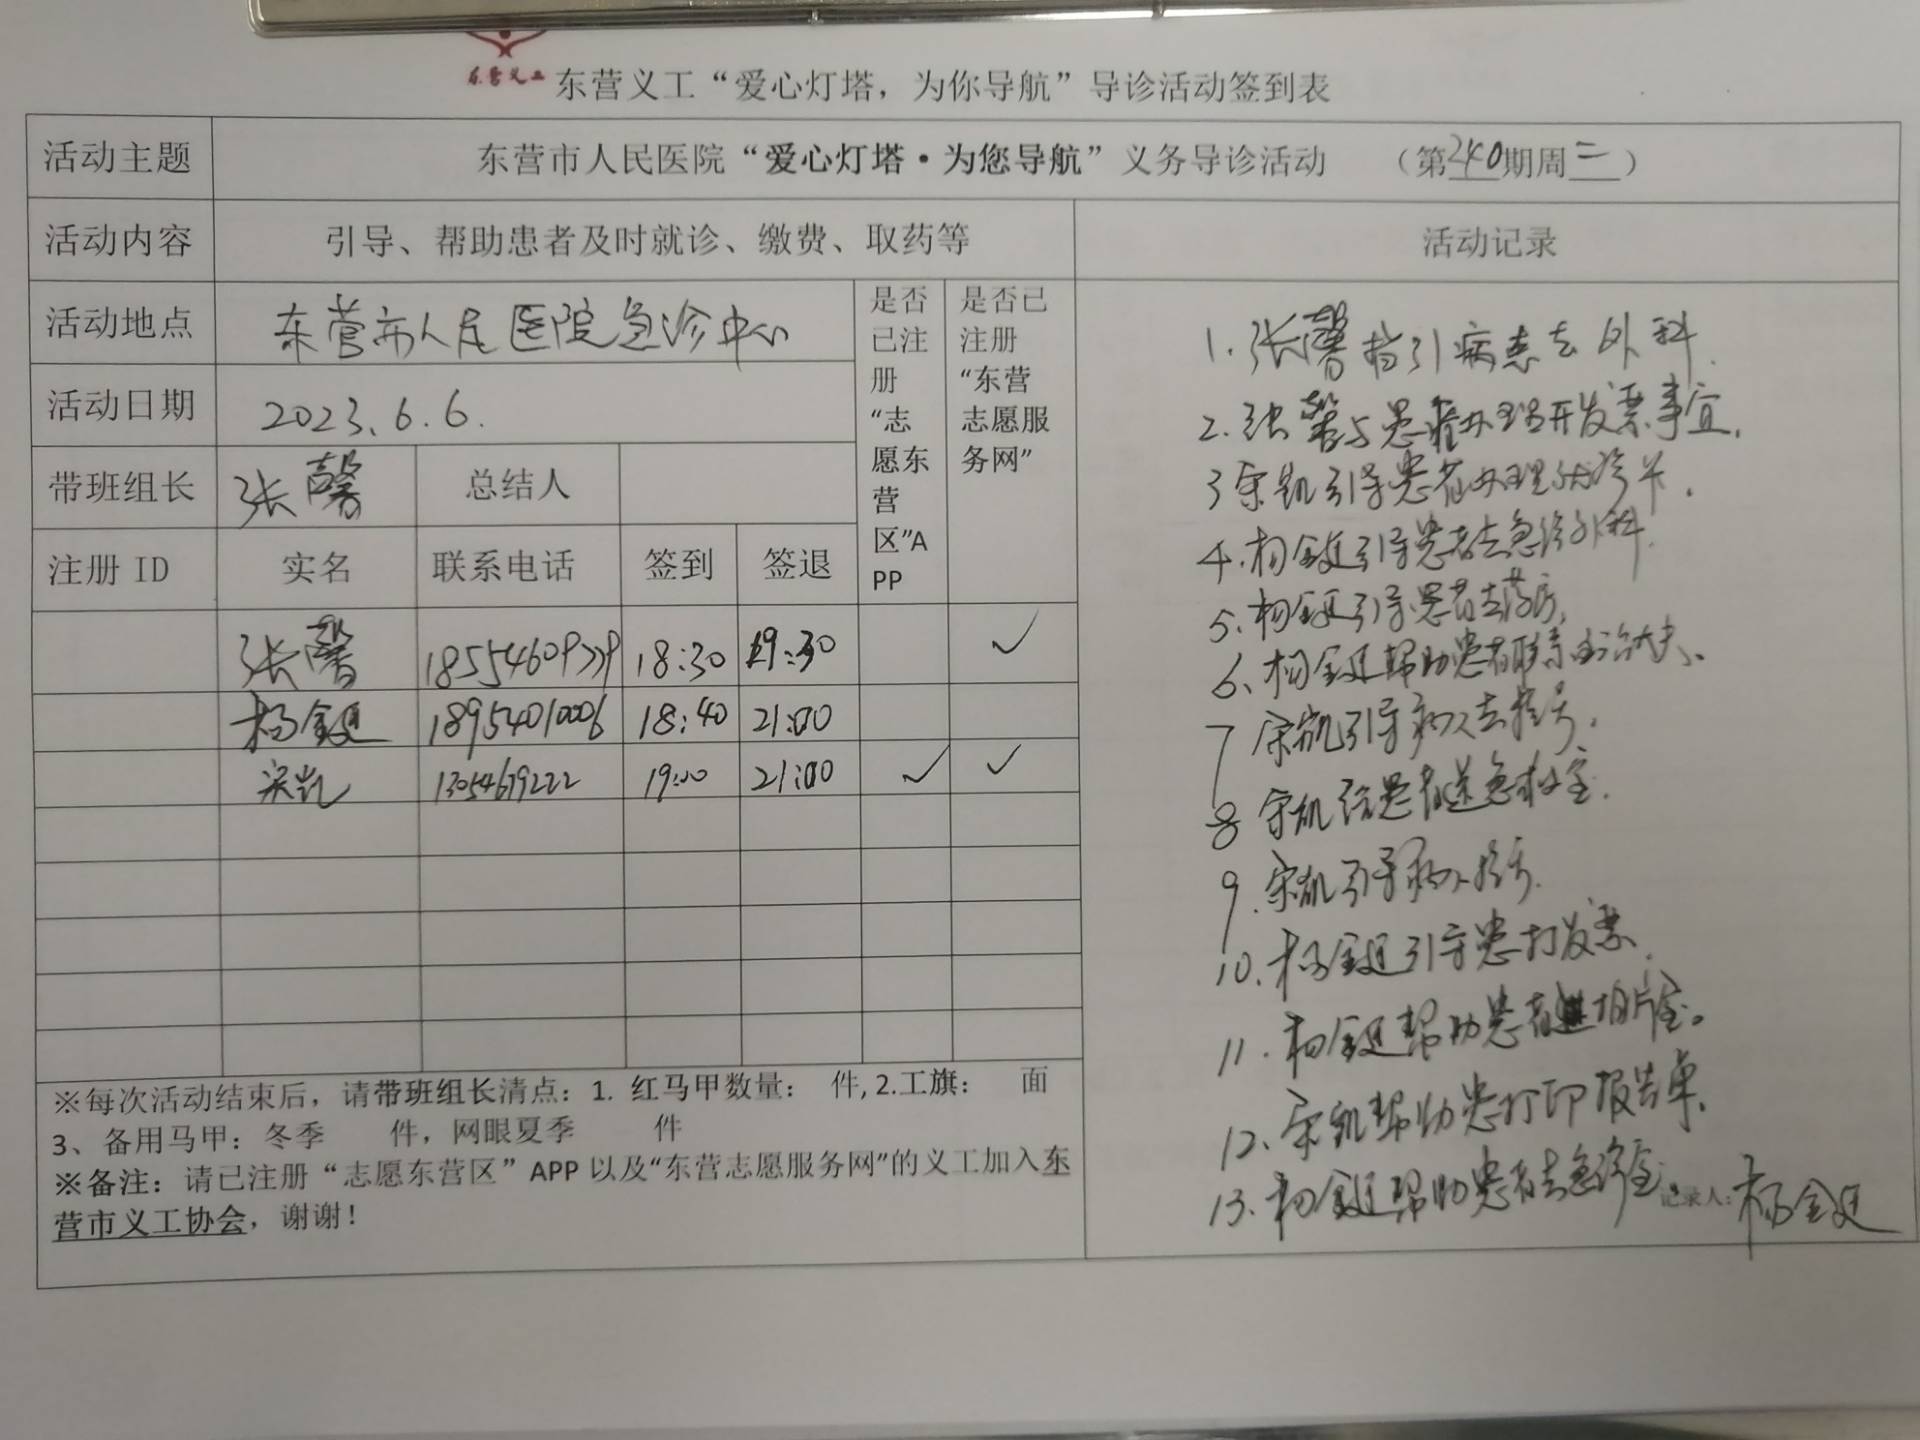 东营义工
东营义工“爱心灯塔，为你导航”导诊活动签到表
活动主题
东营市人民医院“爱心灯塔·为您导航”义务导诊活动 （第240期周二）
活动内容
引导、帮助患者及时就诊、缴费、取药等
活动记录
活动地点
东营市人民医院急诊中心
是否
已注
册
“志
愿东
营
区”A
PP
是否已
注册
“东营
志愿服
务网”
活动日期
2023.6.6.
带班组长
张馨
总结人
注册 ID
实名
联系电话
签到
签退
张馨 18:30 19:30 ✓
杨金廷 18954010006 18:40 21:00
宋凯 13054679222 19:00 21:00 ✓ ✓
1.张馨指引病患去外科.
2.张馨与患者办理开发票事宜.
3宋凯引导患者办理就诊卡.
4.杨金廷引导患者去急诊外科.
5.杨金廷引导患者去药房.
6、杨金廷帮助患者联系主治大夫、
7 宋凯引导病人去挂号.
8 宋凯给患者送急救室.
9.宋凯引导病人挂号.
10.杨金廷引导患打发票.
11.杨金廷帮助患者进拍片室。
12.宋凯帮助患打印报告单.
13.杨金廷帮助患者去急诊室.
记录人：杨金廷
※每次活动结束后，请带班组长清点：1. 红马甲数量： 件, 2.工旗： 面
3、备用马甲：冬季 件，网眼夏季 件
※备注：请已注册“志愿东营区”APP 以及“东营志愿服务网”的义工加入东
营市义工协会，谢谢！